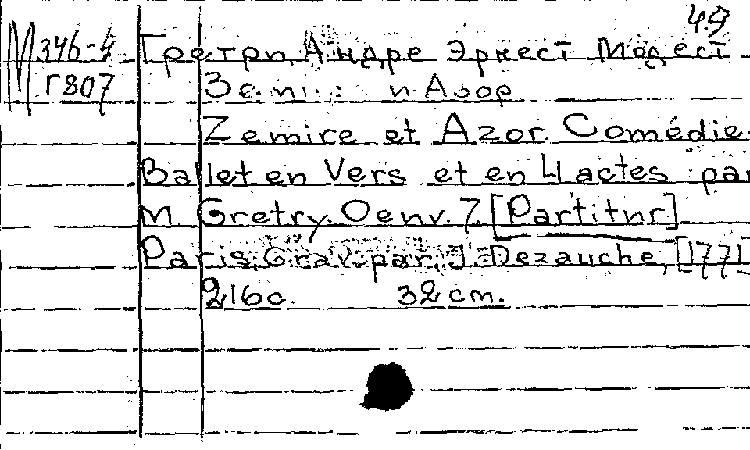 49
М 346-4 Гретри, Андре Эрнест Модест
Г807 и Азор
Zemire et Azor. Comédie-
Ballet en Vers et en 4 actes par
M. Gretry. Oeuv. 7. [Partitur]
Paris, Grav. par J. Dezauche, [1771]
216 с. 32 cm.